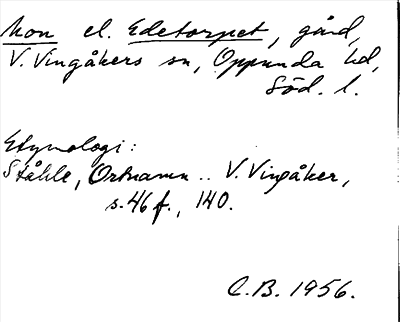 Mon el. Edetorpet, gård,
V. Vingåkers sn, Oppunda hd,
Söd. l.
Etymologi:
Ståhle, Ortnamn.. V. Vingåker,
s. 46 f., 140.
C.B. 1956.